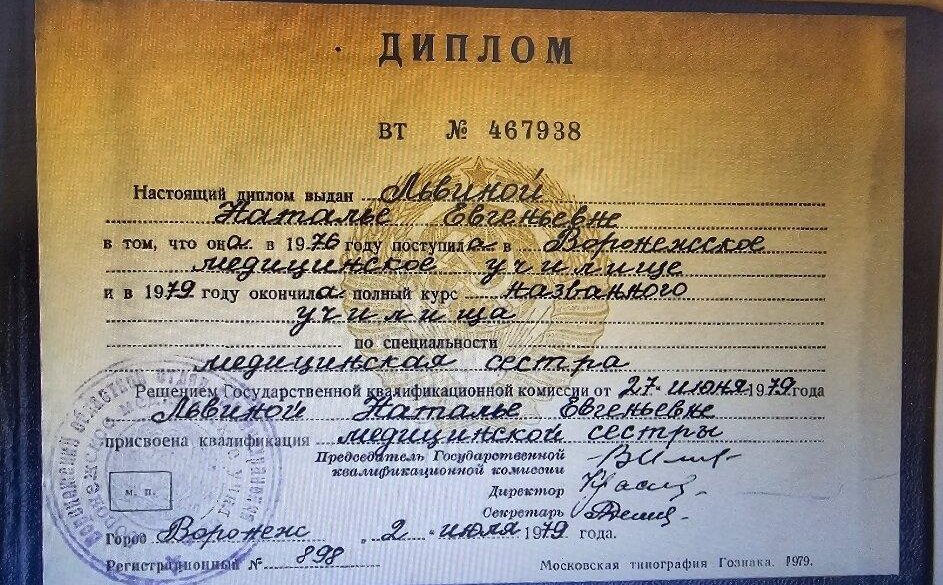 ДИПЛОМ
ВТ № 467938
Настоящий диплом выдан Львиной
Наталье Евгеньевне
в том, что она в 1976 году поступила в Воронежское
медицинское училище
и в 1979 году окончила полный курс названного
училища
по специальности
медицинская сестра
Решением Государственной квалификационной комиссии от 27 июня 1979 года
Львиной Наталье Евгеньевне
присвоена квалификация медицинской сестры
Председатель Государственной
квалификационной комиссии
Директор
Секретарь
м. п.
Город Воронеж „ 2 " июля 1979 года.
Регистрационный № 898
Московская типография Гознака. 1979.